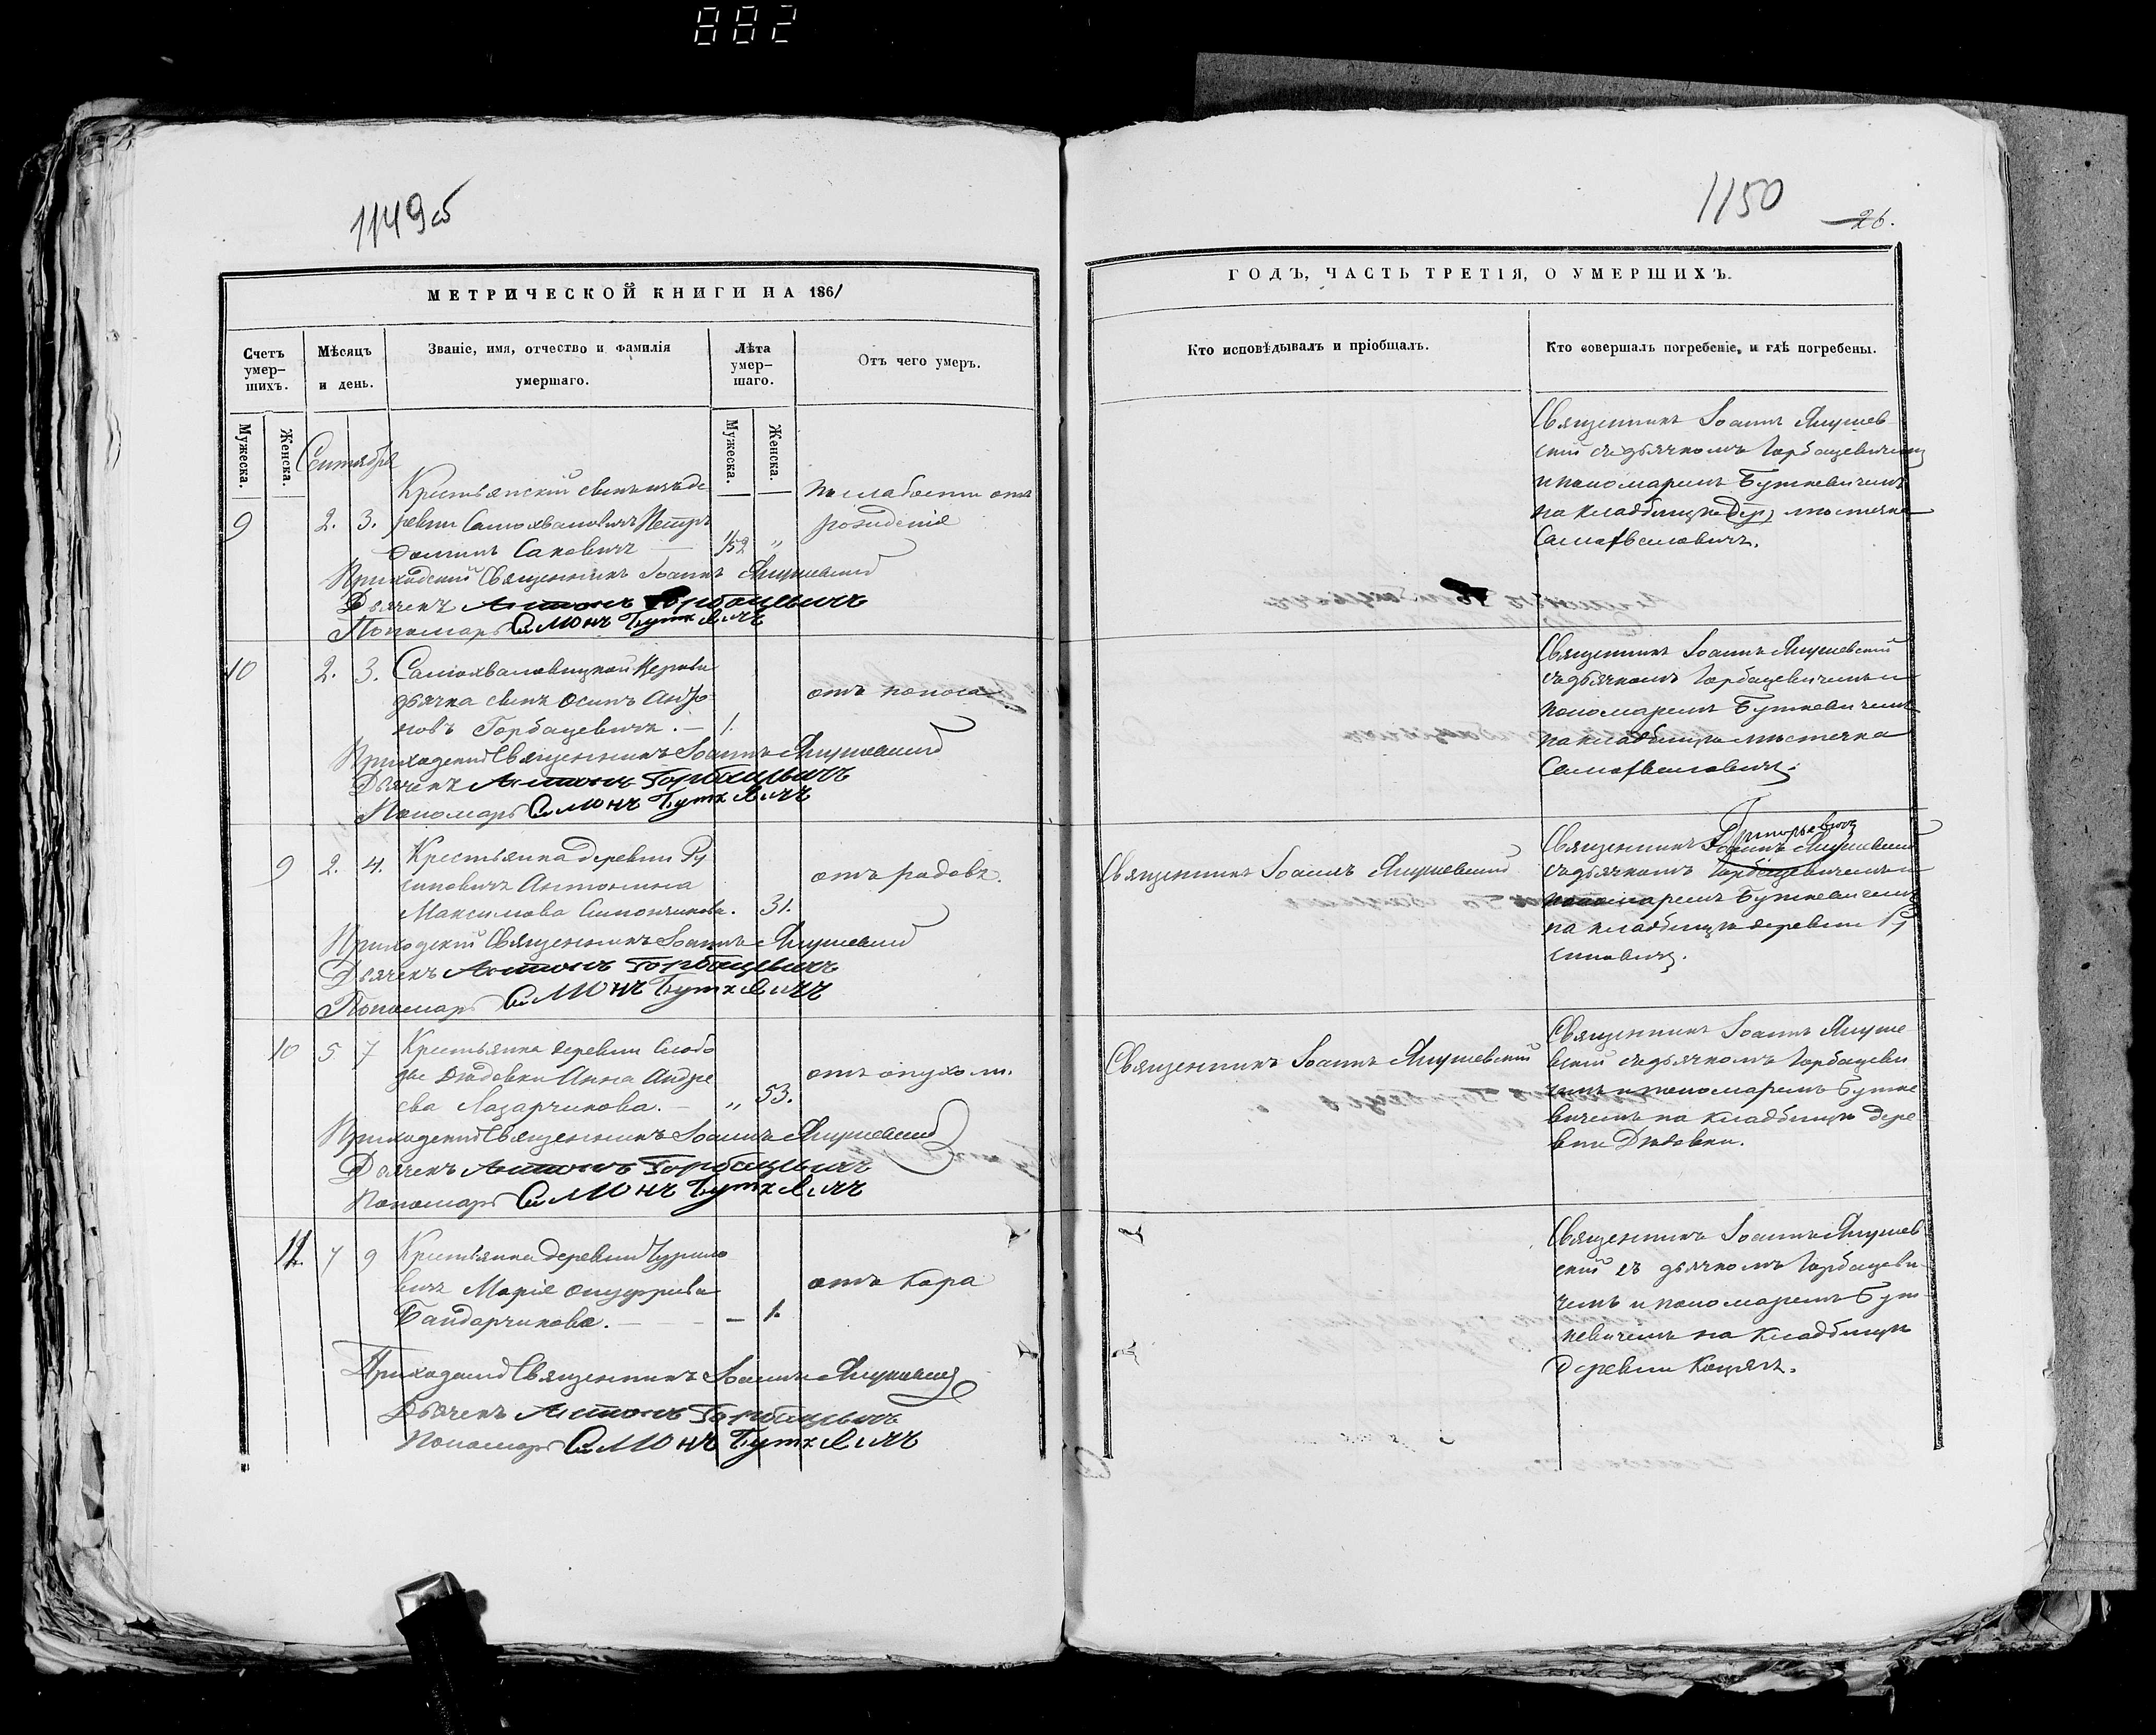 882
1149об
МЕТРИЧЕСКОЙ КНИГИ НА 1861
Счетъ умер-
шихъ.
Мѣсяцъ
и день.
Званіе, имя, отчество и фамилія
умершаго.
Лѣта
умер-
шаго.
Отъ чего умеръ.
Мужеска.
Женска.
Мужеска.
Женска.
Сентября
9
2. 3.
Крестьянскій сынъ изъ де
ревни Самохваловичъ Петръ
Саковичъ —
1/52 "
по слабости отъ
рожденія
Приходскій Священникъ Іоаннъ Янушевскій
Дьячекъ Антонъ Горбацевичъ
Пономарь Симонъ Буткевичъ
10
2. 3.
Самохваловицкой Церкви
дьячка сынъ Осипъ Анто
новъ Горбацевичъ. —
1.
отъ поноса
Приходскій Священникъ Іоаннъ Янушевскій
Дьячекъ Антонъ Горбацевичъ
Пономарь Симонъ Буткевичъ
9
2. 4.
Крестьянка деревни Ру
синовичъ Антонина
Максимова Симончикова.
31.
отъ родовъ.
Приходскій Священникъ Іоаннъ Янушевскій
Дьячекъ Антонъ Горбацевичъ
Пономарь Симонъ Буткевичъ
10
5 7
Крестьянка деревни Слобо
ды Анна Андре
ева Лазарчикова. —
" 53.
отъ опухоли.
Приходскій Священникъ Іоаннъ Янушевскій
Дьячекъ Антонъ Горбацевичъ
Пономарь Симонъ Буткевичъ
11.
7 9
Крестьянка деревни Чурило
вичъ Марія Онуфріева
Бандарчикова. — — —
— 1.
отъ кора
Приходскій Священникъ Іоаннъ Янушевскій
Дьячекъ Антонъ Горбацевичъ
Пономарь Симонъ Буткевичъ
1150
26.
ГОДЪ, ЧАСТЬ ТРЕТІЯ, О УМЕРШИХЪ.
Кто исповѣдывалъ и пріобщалъ.
Кто совершалъ погребеніе, и гдѣ погребены.
Священникъ Іоаннъ Янушев
скій съ дьячкомъ Горбацевичемъ
и пономаремъ Буткевичемъ
на кладбищѣ мѣстечка
Самохваловичъ.
Священникъ Іоаннъ Янушевскій
съ дьячкомъ Горбацевичемъ и
пономаремъ Буткевичемъ
на кладбищѣ мѣстечка
Самохваловичъ.
Священникъ Іоаннъ Янушевскій
Священникъ Іоаннъ Янушевскій
съ дьячкомъ Горбацевичемъ и
пономаремъ Буткевичемъ
на кладбищѣ деревни Ру
синовичъ.
Священникъ Іоаннъ Янушевскій
Священникъ Іоаннъ Януше
вскій съ дьячкомъ Горбацеви
чемъ и пономаремъ Бутке
вичемъ на кладбищѣ дере
вни
Священникъ Іоаннъ Янушев
скій съ дьячкомъ Горбацеви
чемъ и пономаремъ Бут
кевичемъ на кладбищѣ
деревни